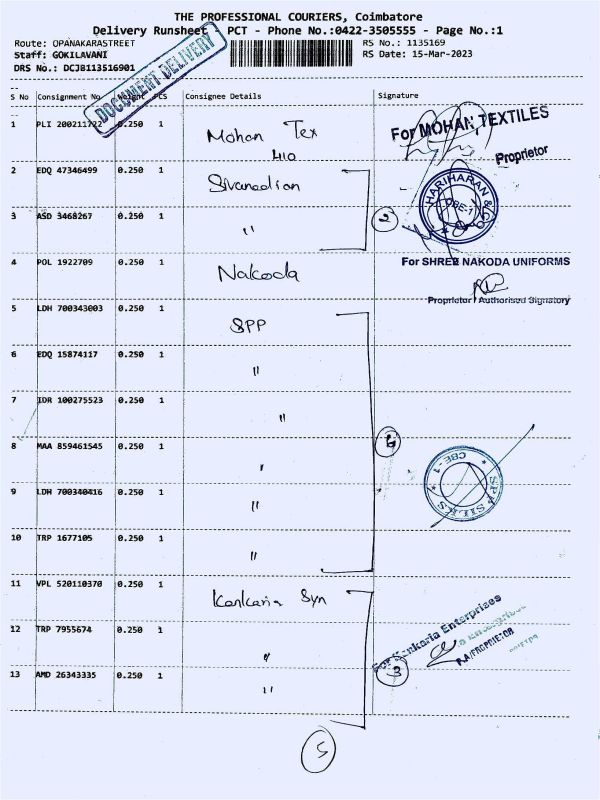 THE PROFESSIONAL COURIERS, Coimbatore
Delivery Runsheet - PCT - Phone No.:0422-3505555 - Page No.:1
Route: OPANAKARASTREET RS No.: 1135169
Staff: GOKILAVANI RS Date: 15-Mar-2023
DRS No.: DCJ8113516901
DOCUMENT DELIVERY
S No Consignment No Weight PCS Consignee Details Signature
1 PLI 0.250 1 Mohan Tex
410
For MOHAN TEXTILES
Proprietor
2 EDQ 47346499 0.250 1
HARIHARAN & CO
CBE-1
3 ASD 3468267 0.250 1 "
2
4 POL 1922709 0.250 1 Nakoda
For SHREE NAKODA UNIFORMS
Proprietor / Authorised Signatory
5 LDH 700343003 0.250 1 SPP
6 EDQ 15874117 0.250 1 "
7 IDR 100275523 0.250 1 "
8 MAA 859461545 0.250 1 "
6
SPP SILKS
CBE - 1
9 LDH 700340416 0.250 1 "
10 TRP 1677105 0.250 1 "
11 VPL 520110370 0.250 1 Kankaria Syn
For Kankaria Enterprises
12 TRP 7955674 0.250 1 "
P.A/PROPRIETOR
3
13 AMD 26343335 0.250 1 "
5